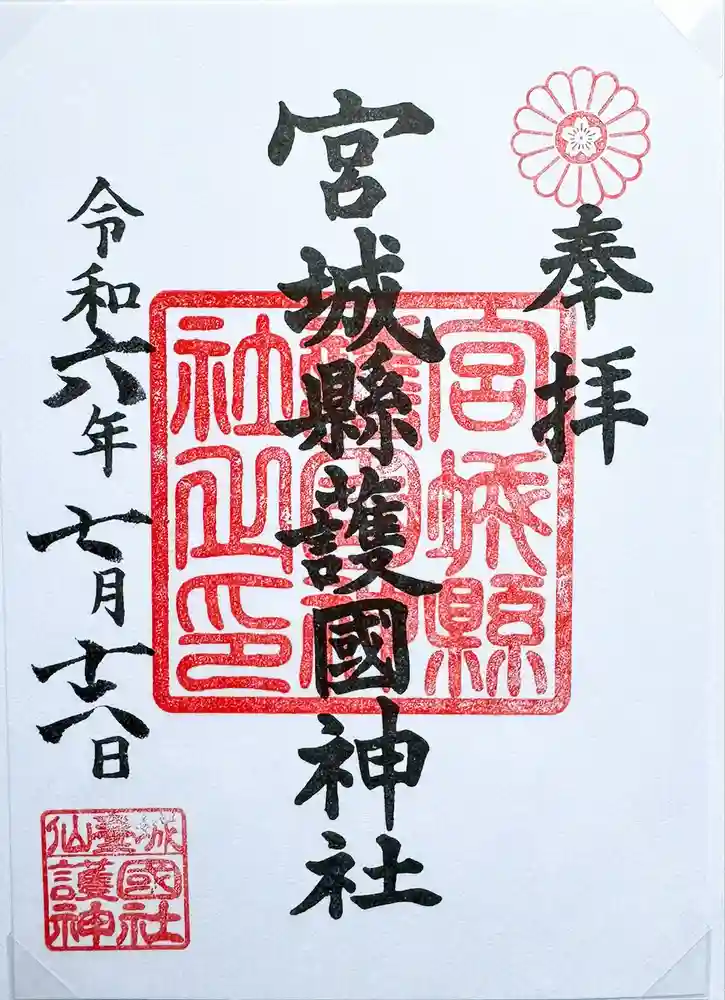 奉拝
宮城縣護國神社
宮城縣
護國神
社之印
令和六年七月十八日
仙臺城
護國
神社